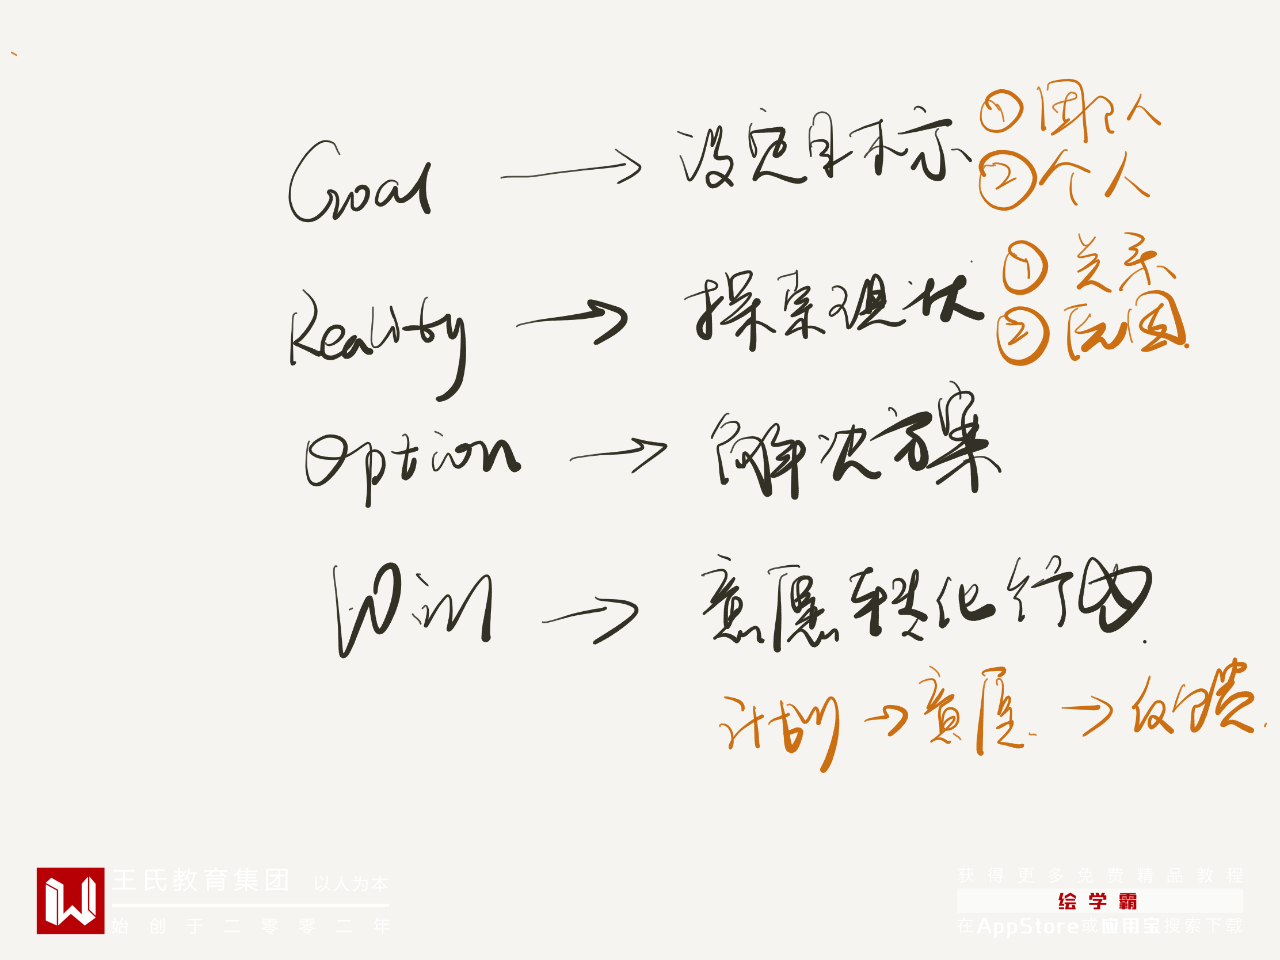 Goal → 设定目标 ①团队
②个人
Reality → 探索现状 ①关系
②原因
Option → 解决方案
Will → 意愿转化行为.
计划→意愿→
王氏教育集团 以人为本
始创于二零零二年
获得更多免费精品教程
绘学霸
在AppStore或应用宝搜索下载